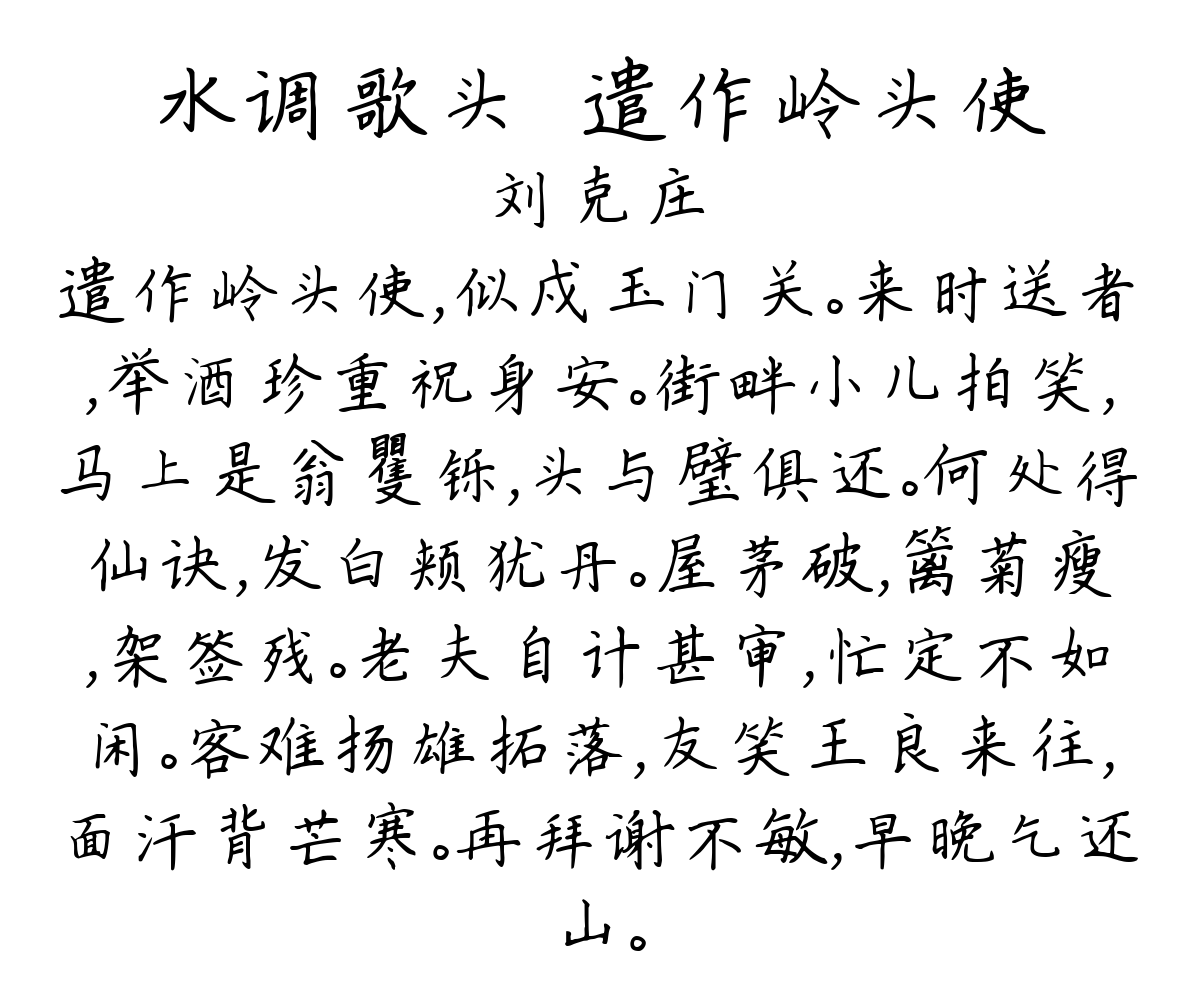 水调歌头 遣作岭头使
刘克庄
遣作岭头使,似戍玉门关。来时送者
,举酒珍重祝身安。街畔小儿拍笑,
马上是翁矍铄,头与璧俱还。何处得
仙诀,发白颊犹丹。屋茅破,篱菊瘦
,架签残。老夫自计甚审,忙定不如
闲。客难扬雄拓落,友笑王良来往,
面汗背芒寒。再拜谢不敏,早晚乞还
山。